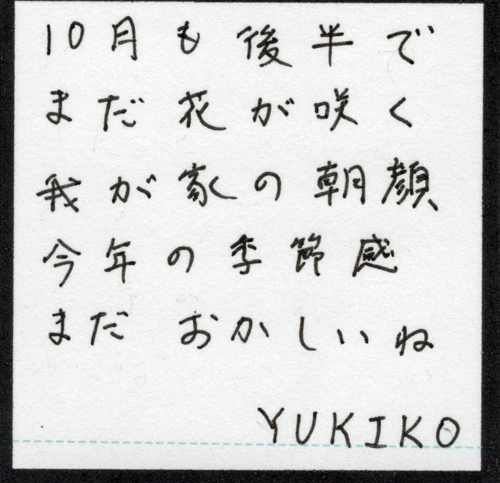 10月も後半で
まだ花が咲く
我が家の朝顔
今年の季節感
まだおかしいね
YUKIKO